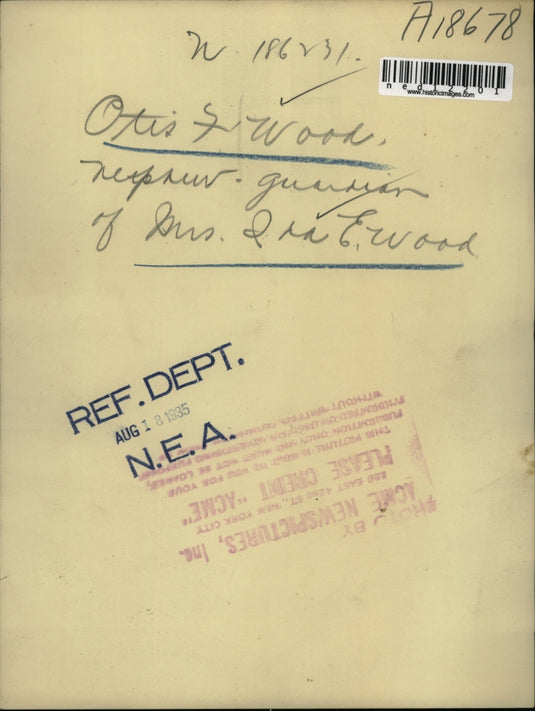 A18678
N 186231.
ned12201
www.historicimages.com
Otis F Wood.
nephew - guardian
of Mrs. Ida E. Wood
REF. DEPT.
AUG 18 1935
N. E. A.
PHOTO BY
ACME NEWSPICTURES, Inc.
220 EAST 42ND ST., NEW YORK CITY
PLEASE CREDIT "ACME"
THIS PICTURE IS SOLD TO YOU FOR YOUR
PUBLICATION ONLY AND MUST NOT BE LOANED,
SYNDICATED OR USED FOR ADVERTISING PURPOSES
WITHOUT WRITTEN